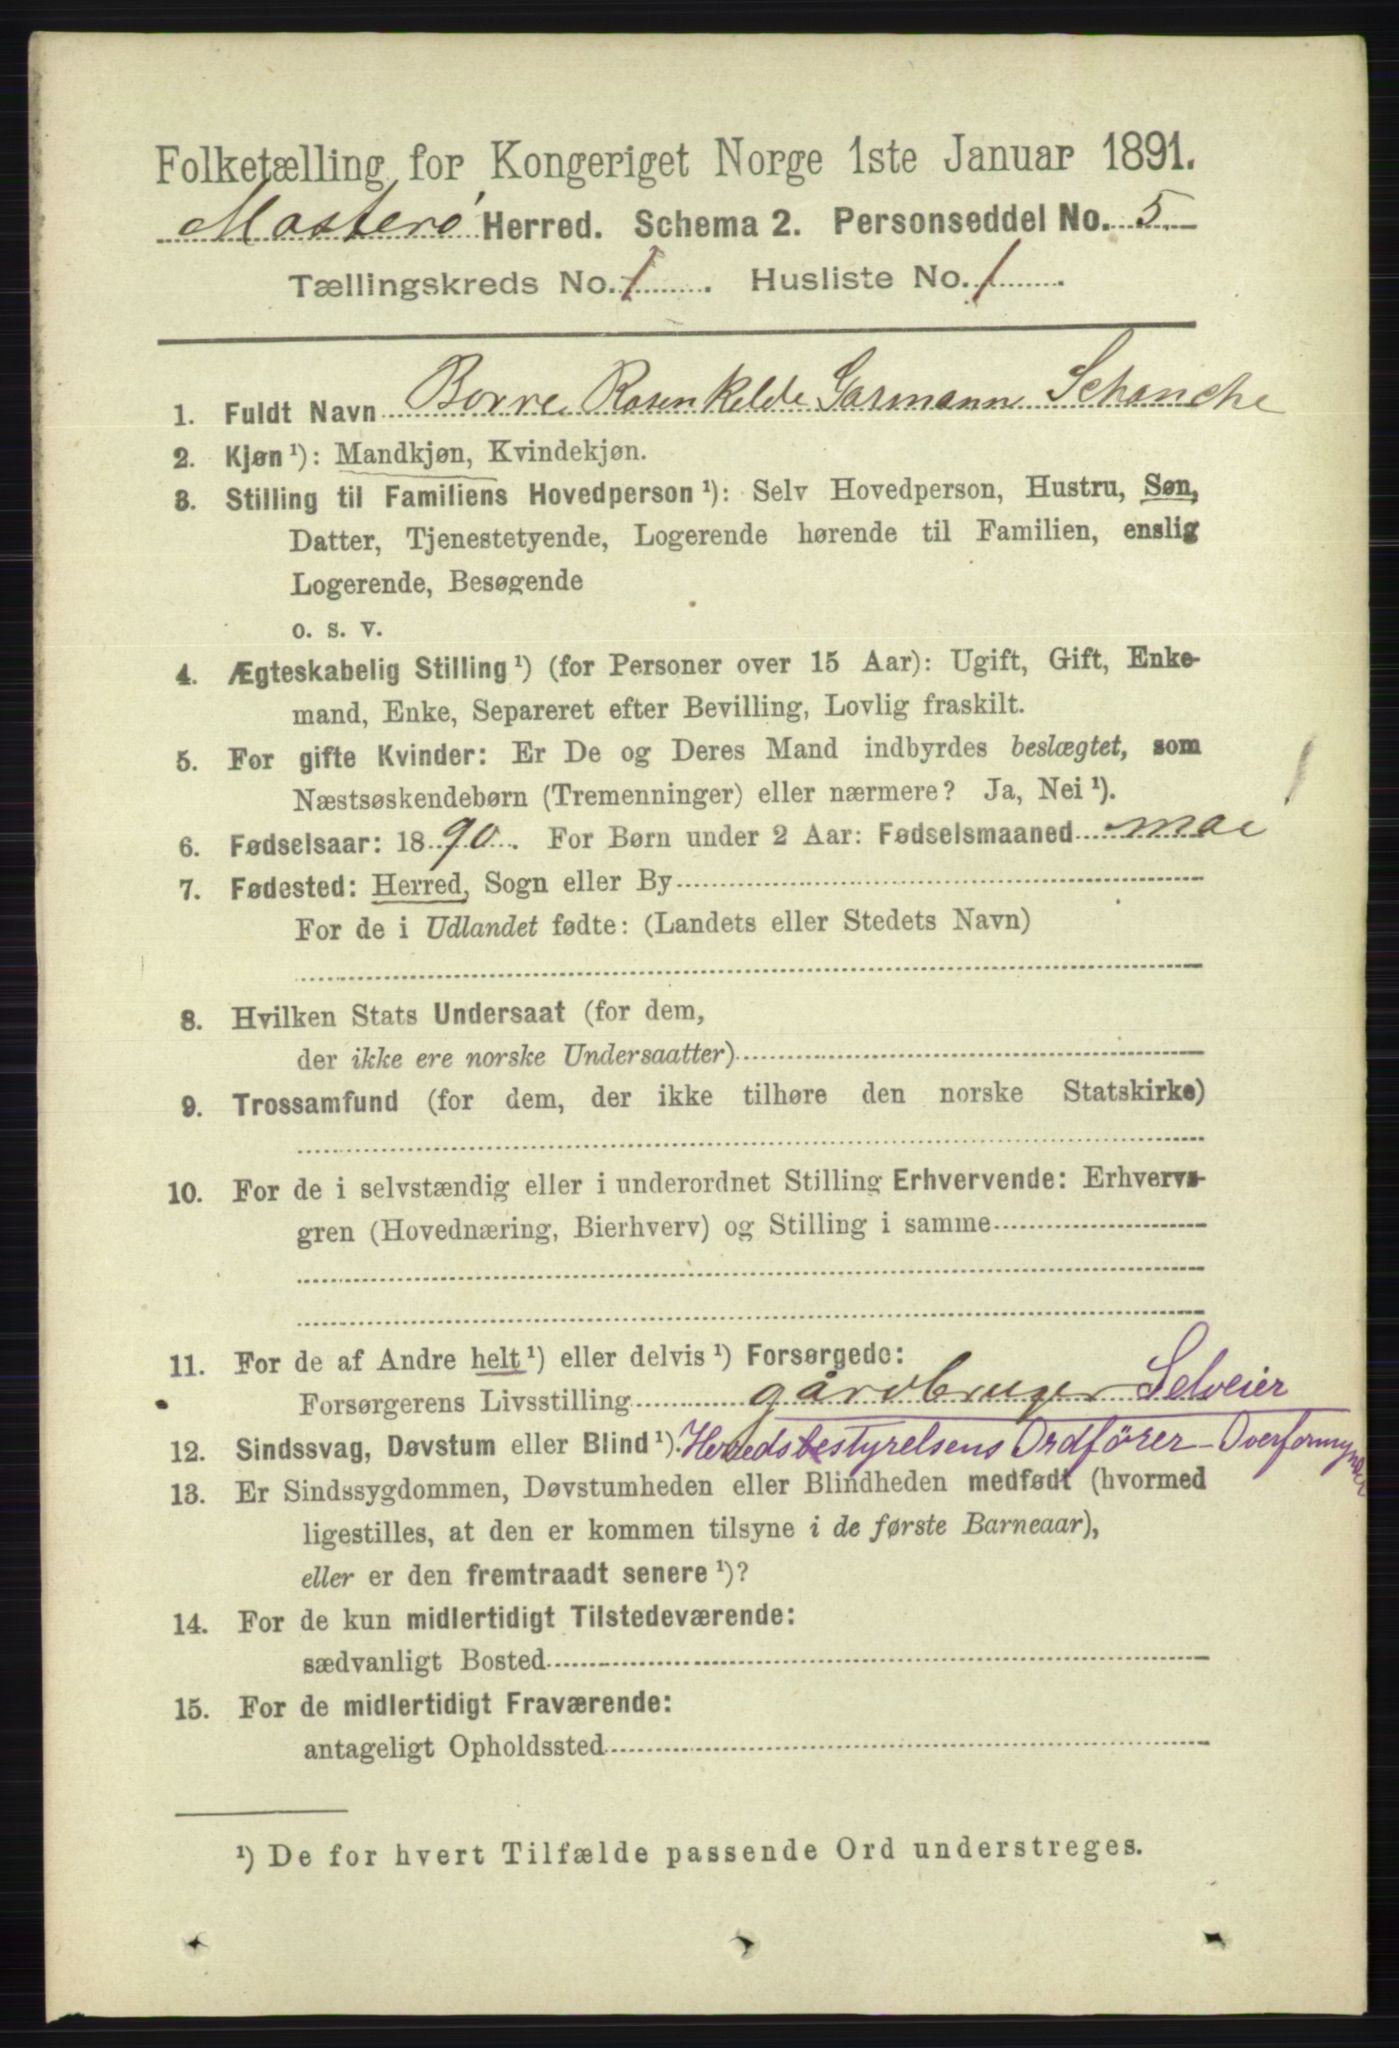 Folketælling for Kongeriget Norge 1ste Januar 1891.
Mosterø Herred. Schema 2. Personseddel No. 5.
Tællingskreds No. 1. Husliste No. 1.
1. Fuldt Navn Borre Rosenkilde Garmann Schanche
2. Kjøn ¹): Mandkjøn, Kvindekjøn.
3. Stilling til Familiens Hovedperson ¹): Selv Hovedperson, Hustru, Søn,
Datter, Tjenestetyende, Logerende hørende til Familien, enslig
Logerende, Besøgende
o. s. v.
4. Ægteskabelig Stilling ¹) (for Personer over 15 Aar): Ugift, Gift, Enke-
mand, Enke, Separeret efter Bevilling, Lovlig fraskilt.
5. For gifte Kvinder: Er De og Deres Mand indbyrdes beslægtet, som
Næstsøskendebørn (Tremenninger) eller nærmere? Ja, Nei ¹).
6. Fødselsaar: 1890. For Børn under 2 Aar: Fødselsmaaned mai
7. Fødested: Herred, Sogn eller By
For de i Udlandet fødte: (Landets eller Stedets Navn)
8. Hvilken Stats Undersaat (for dem,
der ikke ere norske Undersaatter)
9. Trossamfund (for dem, der ikke tilhøre den norske Statskirke)
10. For de i selvstændig eller i underordnet Stilling Erhvervende: Erhvervs-
gren (Hovednæring, Bierhverv) og Stilling i samme
11. For de af Andre helt ¹) eller delvis ¹) Forsørgede:
Forsørgerens Livsstilling gårdbruger Selveier
12. Sindssvag, Døvstum eller Blind ¹). Herredsbestyrelsens Ordfører - Overformynder
13. Er Sindssygdommen, Døvstumheden eller Blindheden medfødt (hvormed
ligestilles, at den er kommen tilsyne i de første Barneaar),
eller er den fremtraadt senere ¹)?
14. For de kun midlertidigt Tilstedeværende:
sædvanligt Bosted
15. For de midlertidigt Fraværende:
antageligt Opholdssted
¹) De for hvert Tilfælde passende Ord understreges.